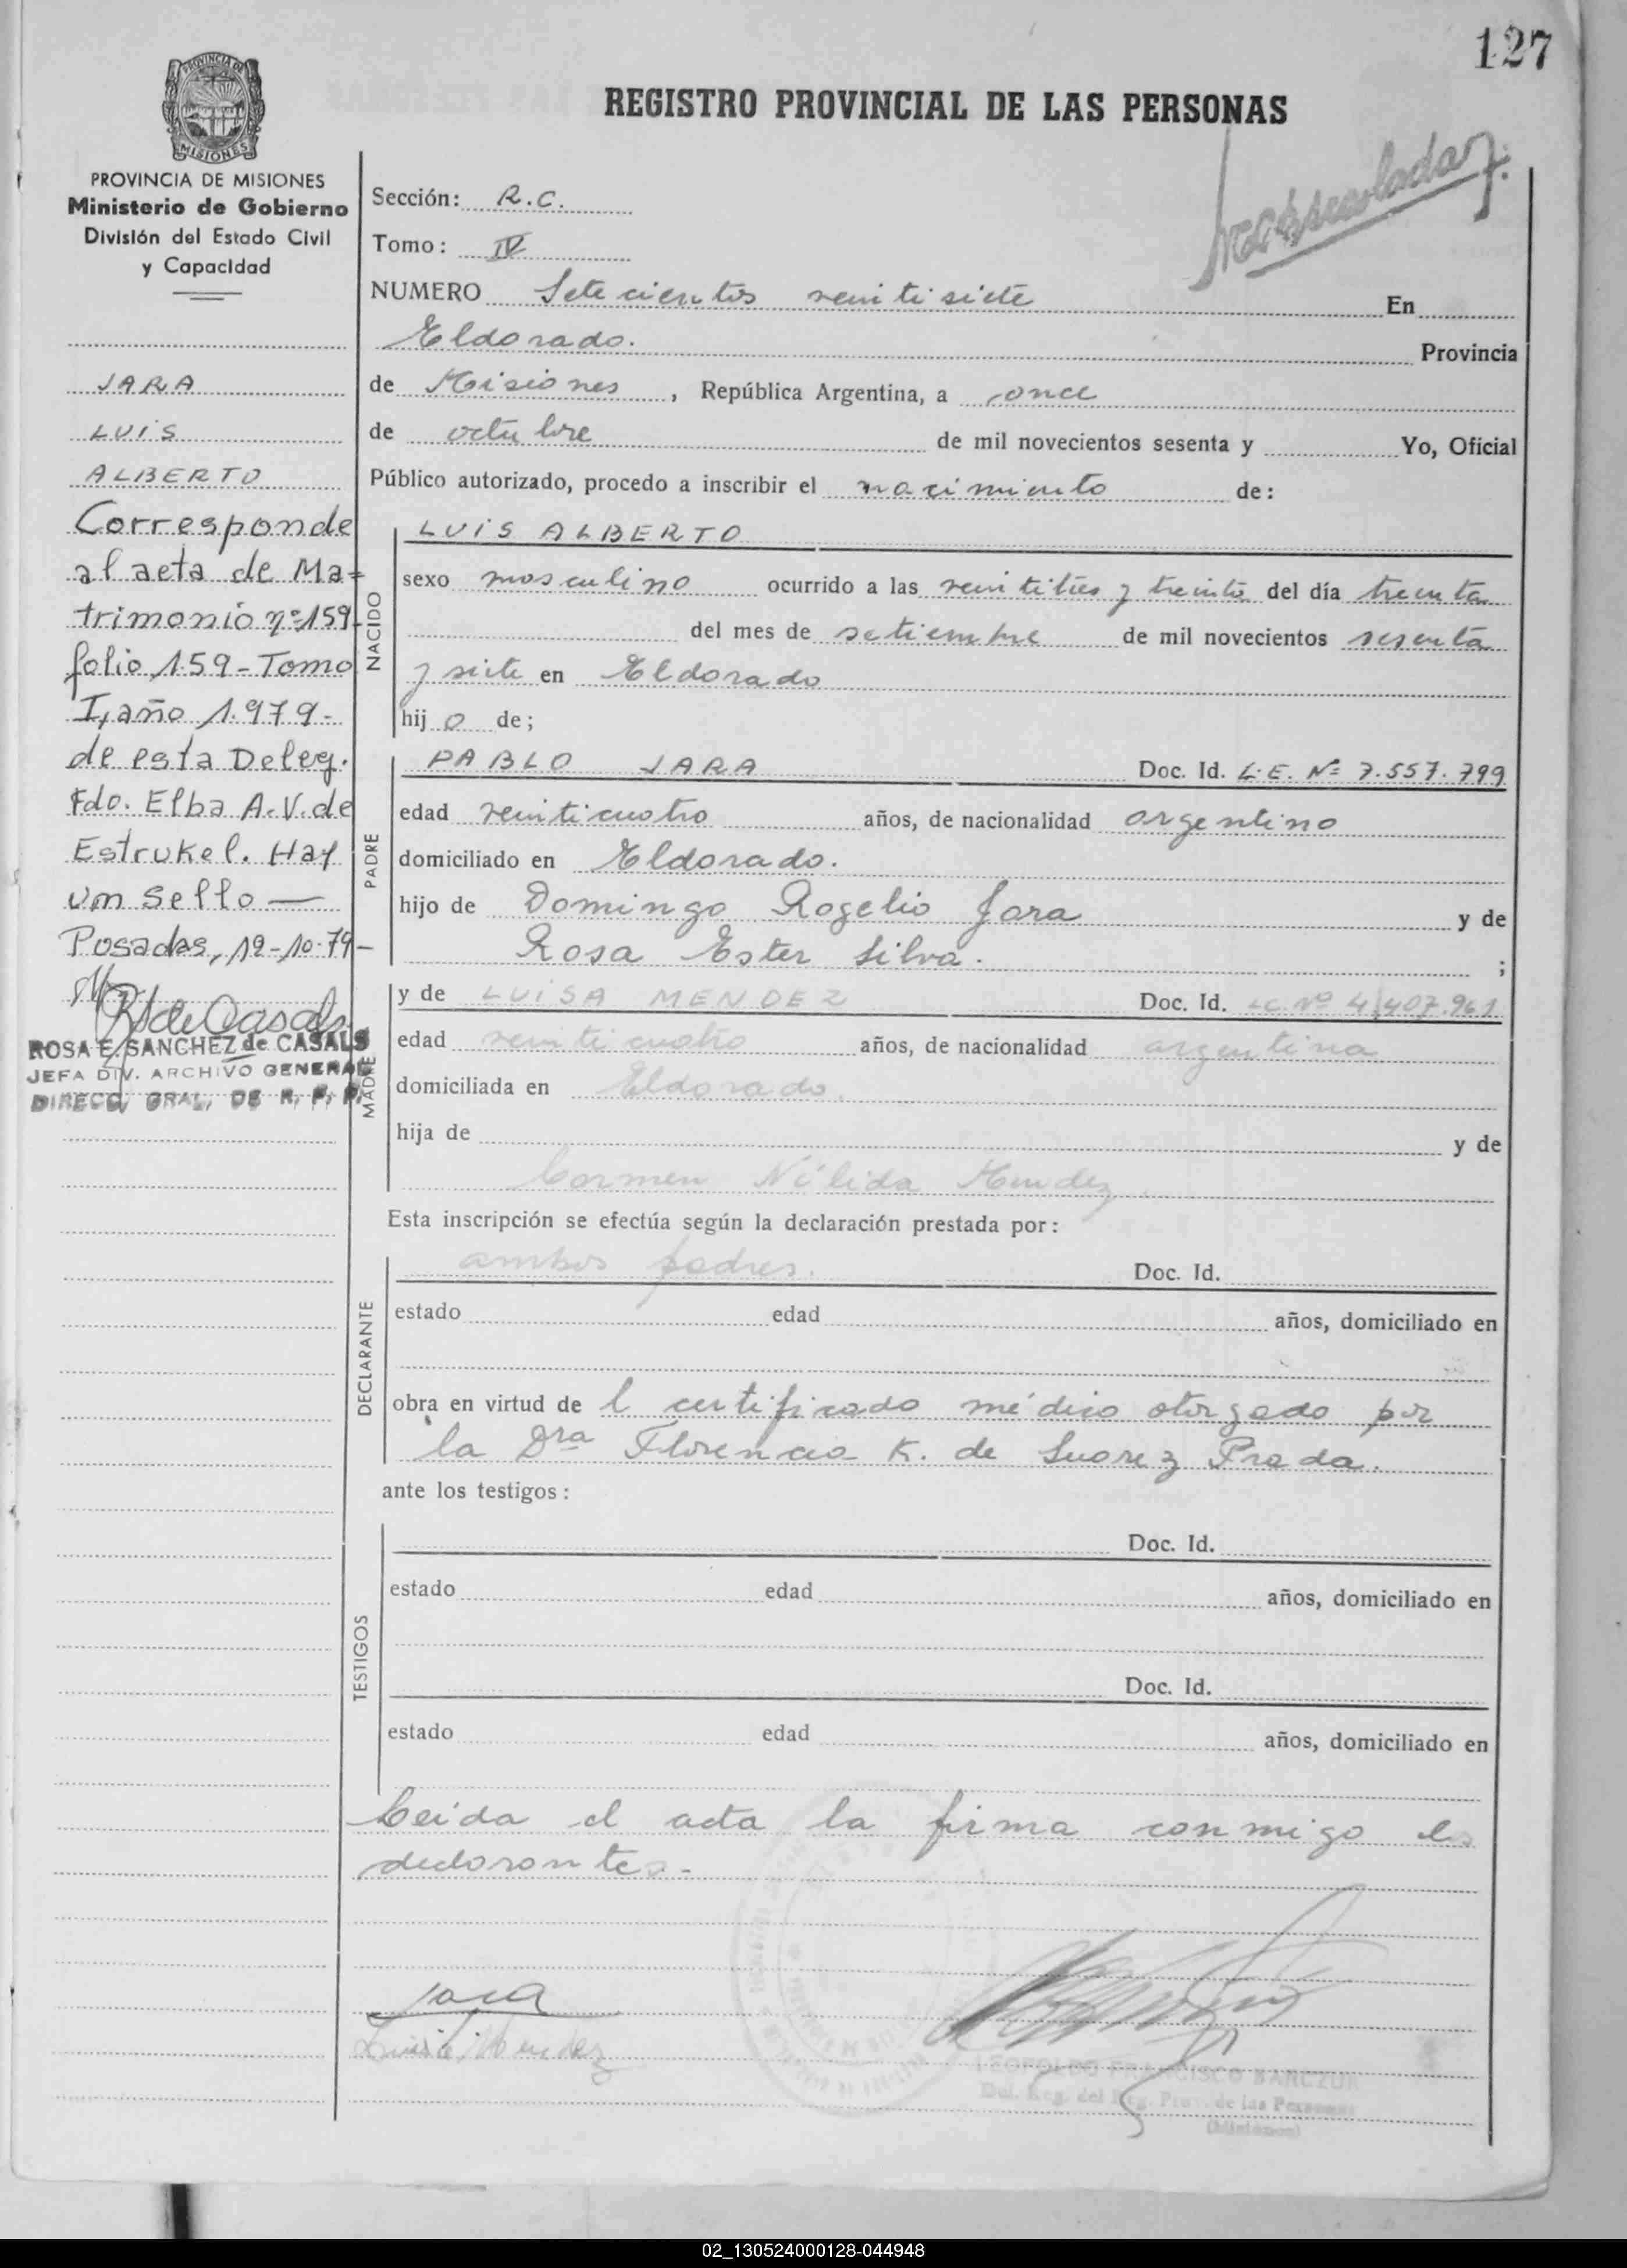 127
REGISTRO PROVINCIAL DE LAS PERSONAS
PROVINCIA DE MISIONES
MISIONES
PROVINCIA DE MISIONES
Ministerio de Gobierno
División del Estado Civil
y Capacidad
JARA
LUIS
ALBERTO
Corresponde
al acta de Ma=
trimonio nº 159
folio 159 - Tomo
I, año 1.979 -
de esta Deleg.
Fdo. Elba A. V. de
Estrukel. Hay
un sello —
Posadas, 12-10-79 -
ROSA E. SANCHEZ de CASALS
JEFA DIV. ARCHIVO GENERAL
DIRECC. GRAL. DE R. P. P.
Sección: R.C.
Tomo: IV
NUMERO Setecientos veintisiete En
Eldorado. Provincia
de Misiones, República Argentina, a once
de octubre de mil novecientos sesenta y Yo, Oficial
Público autorizado, procedo a inscribir el nacimiento de:
NACIDO
LUIS ALBERTO
sexo masculino ocurrido a las veintitres y treinta del día treinta
del mes de setiembre de mil novecientos sesenta
y siete en Eldorado
hij o de;
PADRE
PABLO JARA Doc. Id. L.E. Nº 7.557.799
edad veinticuatro años, de nacionalidad argentino
domiciliado en Eldorado.
hijo de Domingo Rogelio Jara y de
Rosa Ester Silva. ;
MADRE
y de LUISA MENDEZ Doc. Id. LC. Nº 4.407.961
edad veinticuatro años, de nacionalidad argentina
domiciliada en Eldorado.
hija de y de
Carmen Nélida Mendez.
Esta inscripción se efectúa según la declaración prestada por:
DECLARANTE
ambos padres. Doc. Id.
estado edad años, domiciliado en
obra en virtud de l certificado médico otorgado por
la Dra Florencia K. de Suarez Prada.
ante los testigos:
TESTIGOS
Doc. Id.
estado edad años, domiciliado en
Doc. Id.
estado edad años, domiciliado en
Leida el acta la firma conmigo los
declarantes.-
Jara
Luisa Mendez
LEOPOLDO FRANCISCO BARCZUK
Del. Reg. del Reg. Prov. de las Personas
(Misiones)
02_130524000128-044948